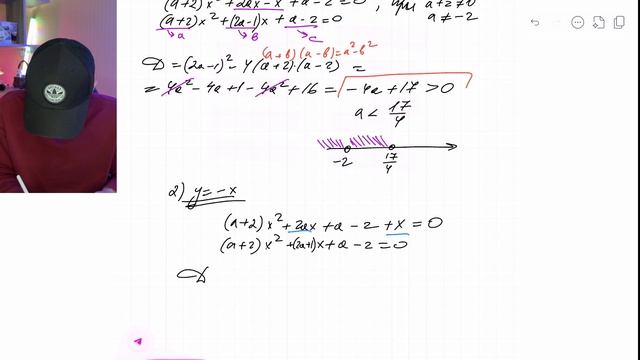 (a+2)x²+2ax-x+a-2=0, при a+2≠0
(a+2)x²+(2a-1)x+a-2=0 a≠-2
a b c
(a+b)(a-b)=a²-b²
D=(2a-1)²-4(a+2)·(a-2)=
=4a²-4a+1-4a²+16=-4a+17>0
a<17/4
-2 17/4
2) y=-x
(a+2)x²+2ax+a-2+x=0
(a+2)x²+(2a+1)x+a-2=0
D